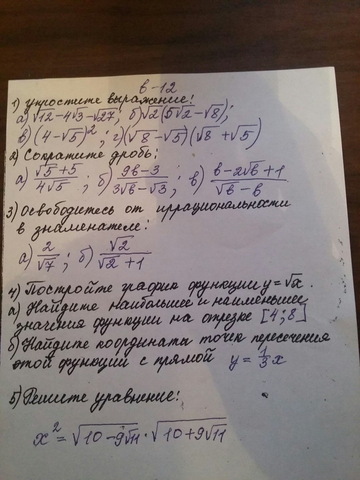 в-12
1) упростите выражение:
а) √12-4√3-√27; б) √2(5√2-√8);
в) (4-√5)²; г) (√8-√5)(√8+√5)
2) Сократите дробь:
а) (√5+5)/(4√5); б) (9в-3)/(3√в-√3); в) (в-2√в+1)/(√в-в)
3) Освободитесь от иррациональности
в знаменателе:
а) 2/√7; б) √2/(√2+1)
4) Постройте график функции y=√x.
а) Найдите наибольшее и наименьшее
значения функции на отрезке [4;8]
б) Найдите координата точек пересечения
этой функции с прямой y=1/3x
5) Решите уравнение:
x²=√(10-9√11)·√(10+9√11)